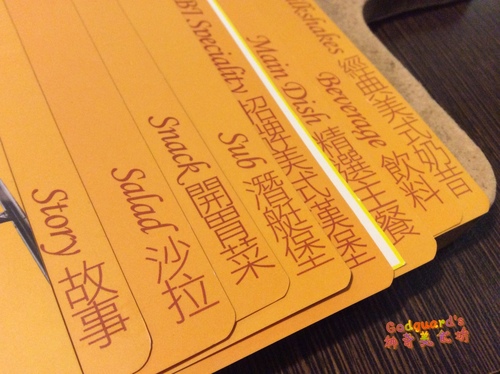 Story 故事
Salad 沙拉
Snack 開胃菜
Sub 潛艇堡
Speciality 招牌美式漢堡
Main Dish 精選主餐
Beverage 飲料
經典美式奶昔
Godguard's